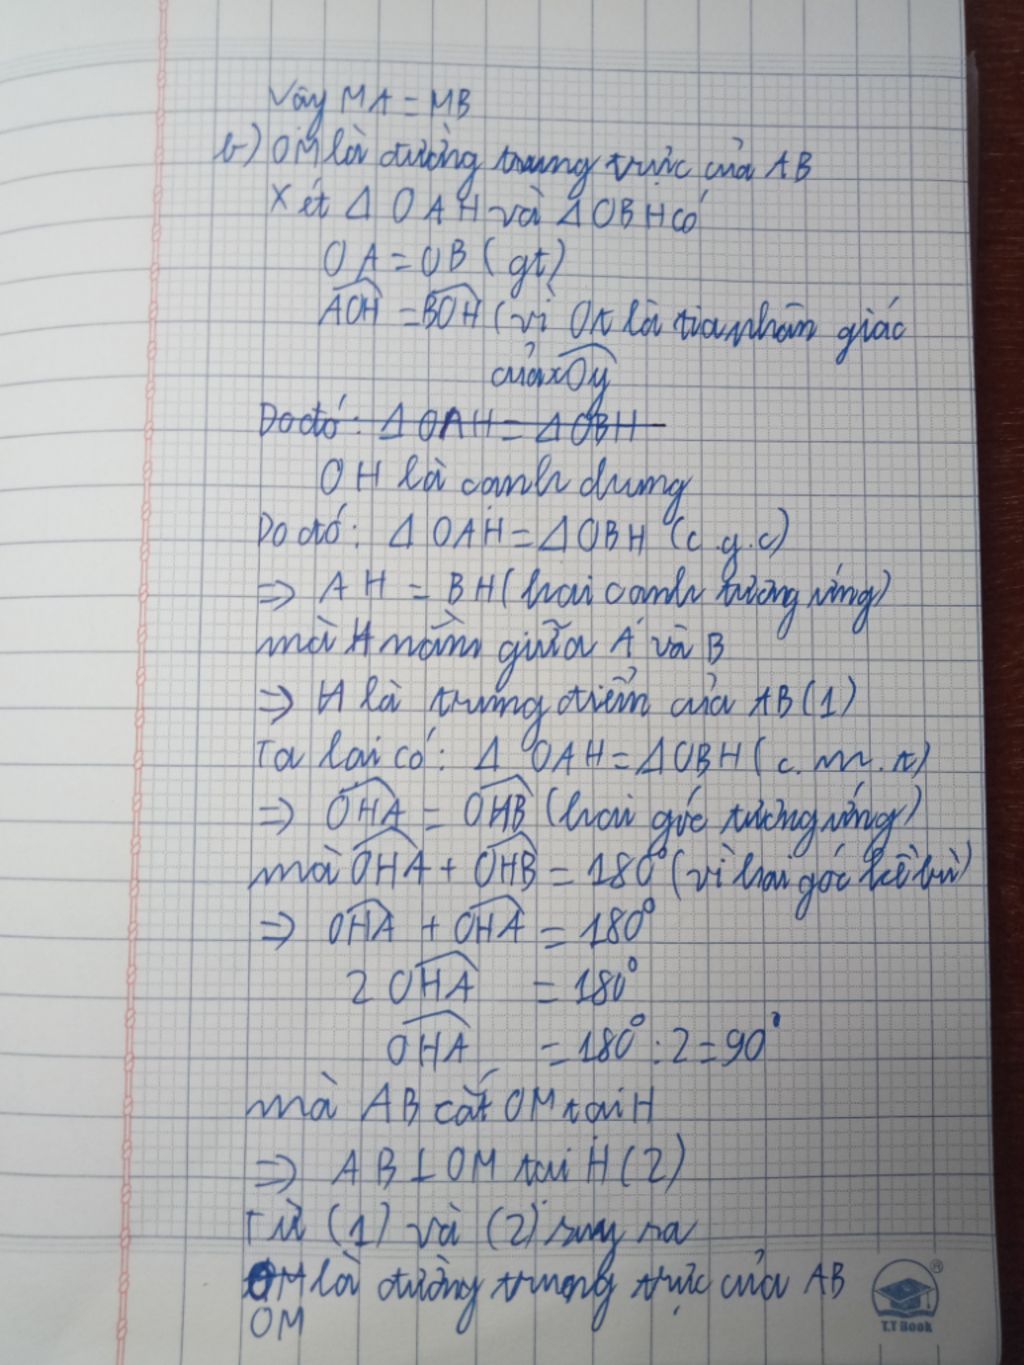 Vậy MA = MB
b) OM là đường trung trực của AB
Xét Δ OAH và ΔOBH có
OA = OB (gt)
AOH = BOH (vì Ot là tia phân giác
của xOy
Do đó: Δ OAH = ΔOBH
OH là cạnh chung
Do đó: Δ OAH = ΔOBH (c.g.c)
⇒ AH = BH (hai cạnh tương ứng)
mà H nằm giữa A và B
⇒ H là trung điểm của AB (1)
Ta lại có: Δ OAH = ΔOBH (c.m.t)
⇒ OHA = OHB (hai góc tương ứng)
mà OHA + OHB = 180° (vì hai góc kề bù)
⇒ OHA + OHA = 180°
2 OHA = 180°
OHA = 180° : 2 = 90°
mà AB cắt OM tại H
⇒ AB ⊥ OM tại H (2)
Từ (1) và (2) suy ra
OM là đường trung trực của AB
OM
T.T Book